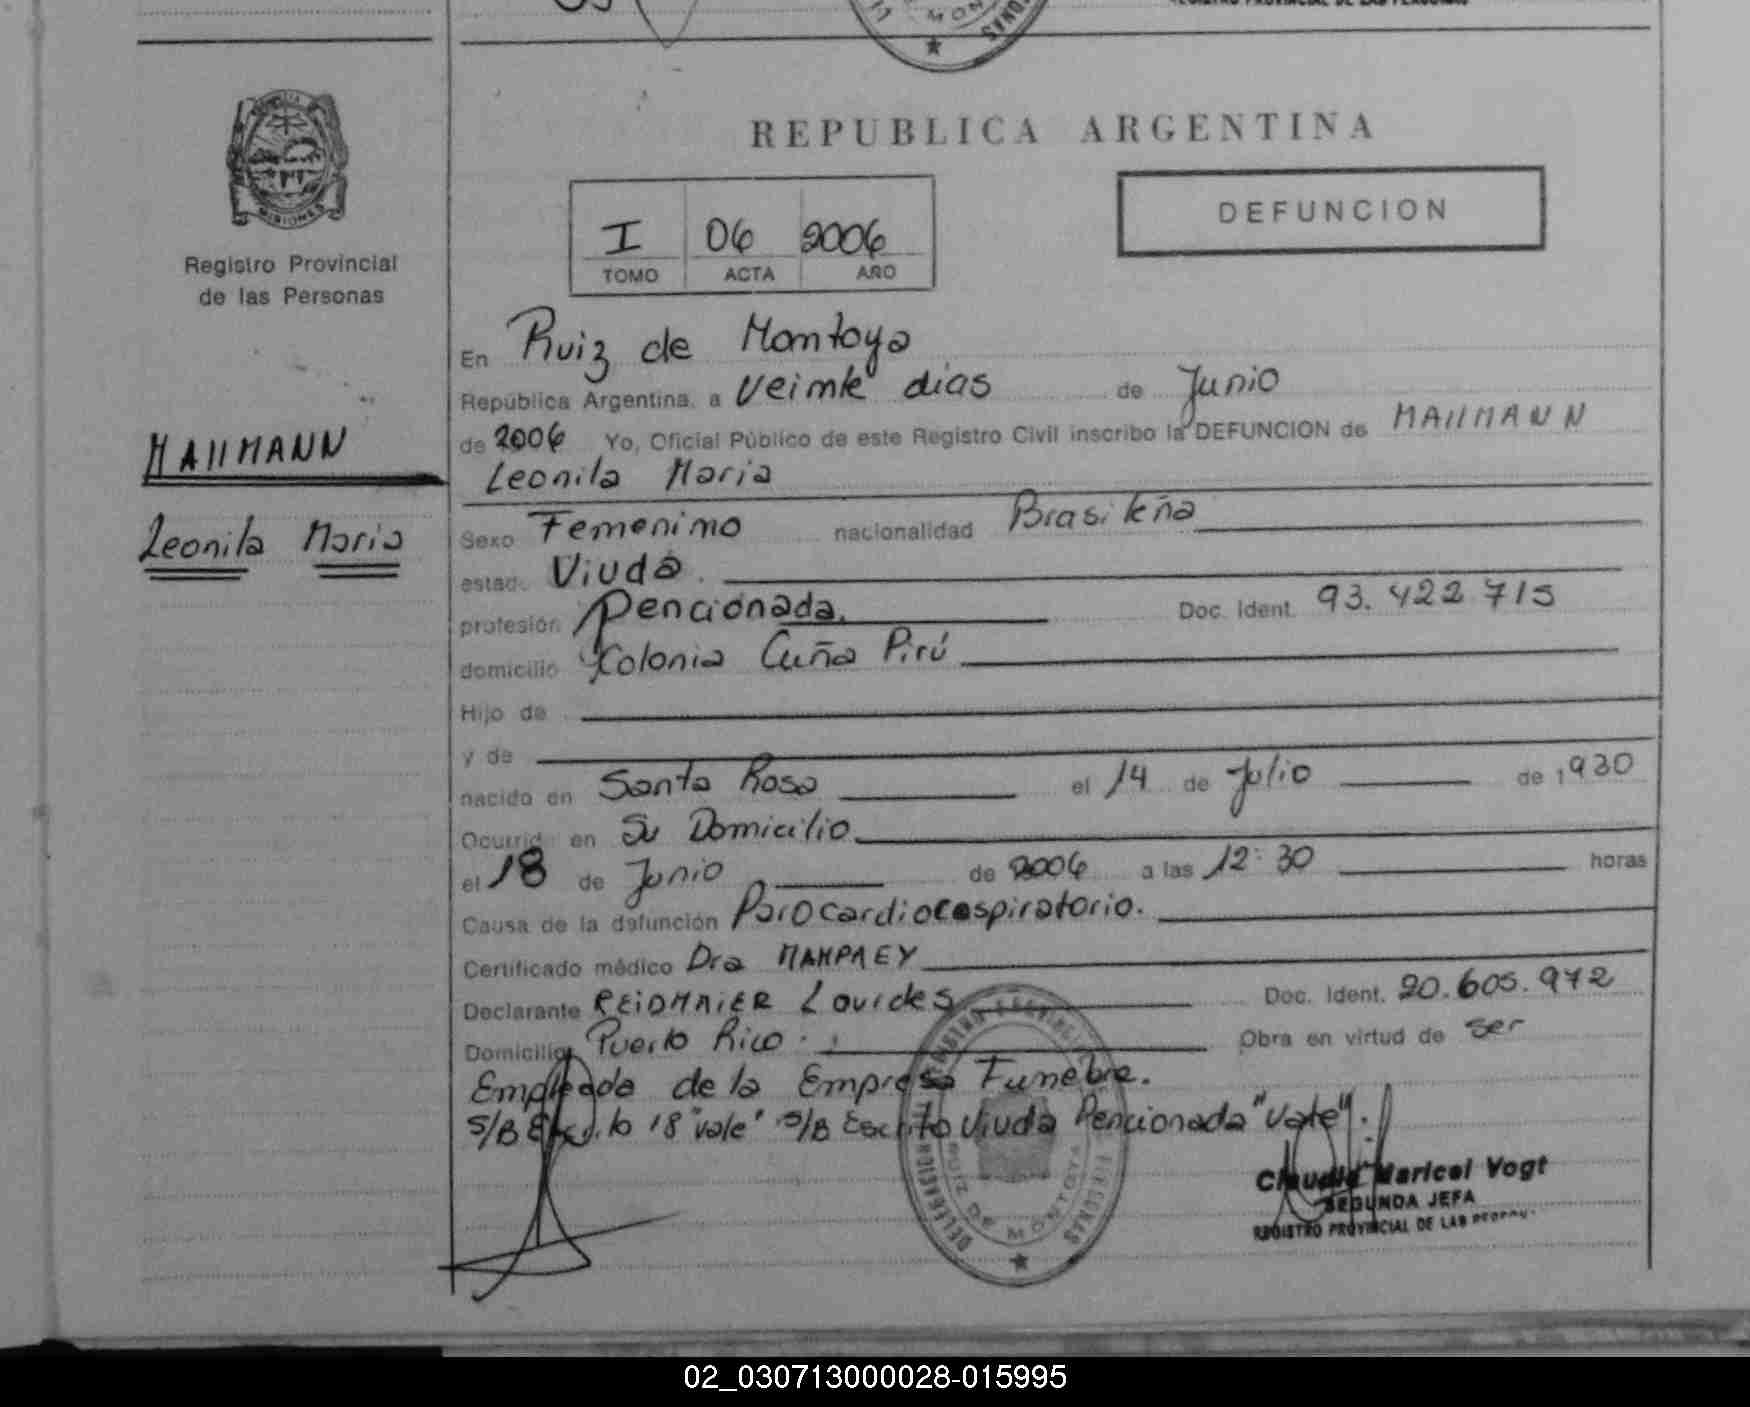 REPUBLICA ARGENTINA
MISIONES
Registro Provincial
de las Personas
I 06 2006
TOMO ACTA AÑO
DEFUNCION
MALLMANN
Leonila Maria
En Ruiz de Montoya
República Argentina, a veinte dias de Junio
de 2006 Yo, Oficial Público de este Registro Civil inscribo la DEFUNCION de MALLMANN
Leonila Maria
Sexo Femenino nacionalidad Brasileña
estad. Viuda.
profesión Pencionada.
Doc. Ident. 93.422.715
domicilio Colonia Cuña Pirú
Hijo de
y de
nacido en Santa Rosa el 14 de Julio de 1930
Ocurrida en Su Domicilio.
el 18 de Junio de 2006 a las 12:30 horas
Causa de la defunción Parocardiorespiratorio.
Certificado médico Dra
Declarante REIDMAIER Lourdes Doc. Ident. 20.605.972
Domicilio Puerto Rico. Obra en virtud de ser
Empleada de la Empresa Funebre.
S/B Escrito 18 "vale" S/B Escrito Viuda Pencionada "Vale".
DELEGACION REGISTRO PROVINCIAL PERSONAS
RUIZ DE MONTOYA
Claudia Maricel Vogt
SEGUNDA JEFA
REGISTRO PROVINCIAL DE LAS PERSON.
02_030713000028-015995